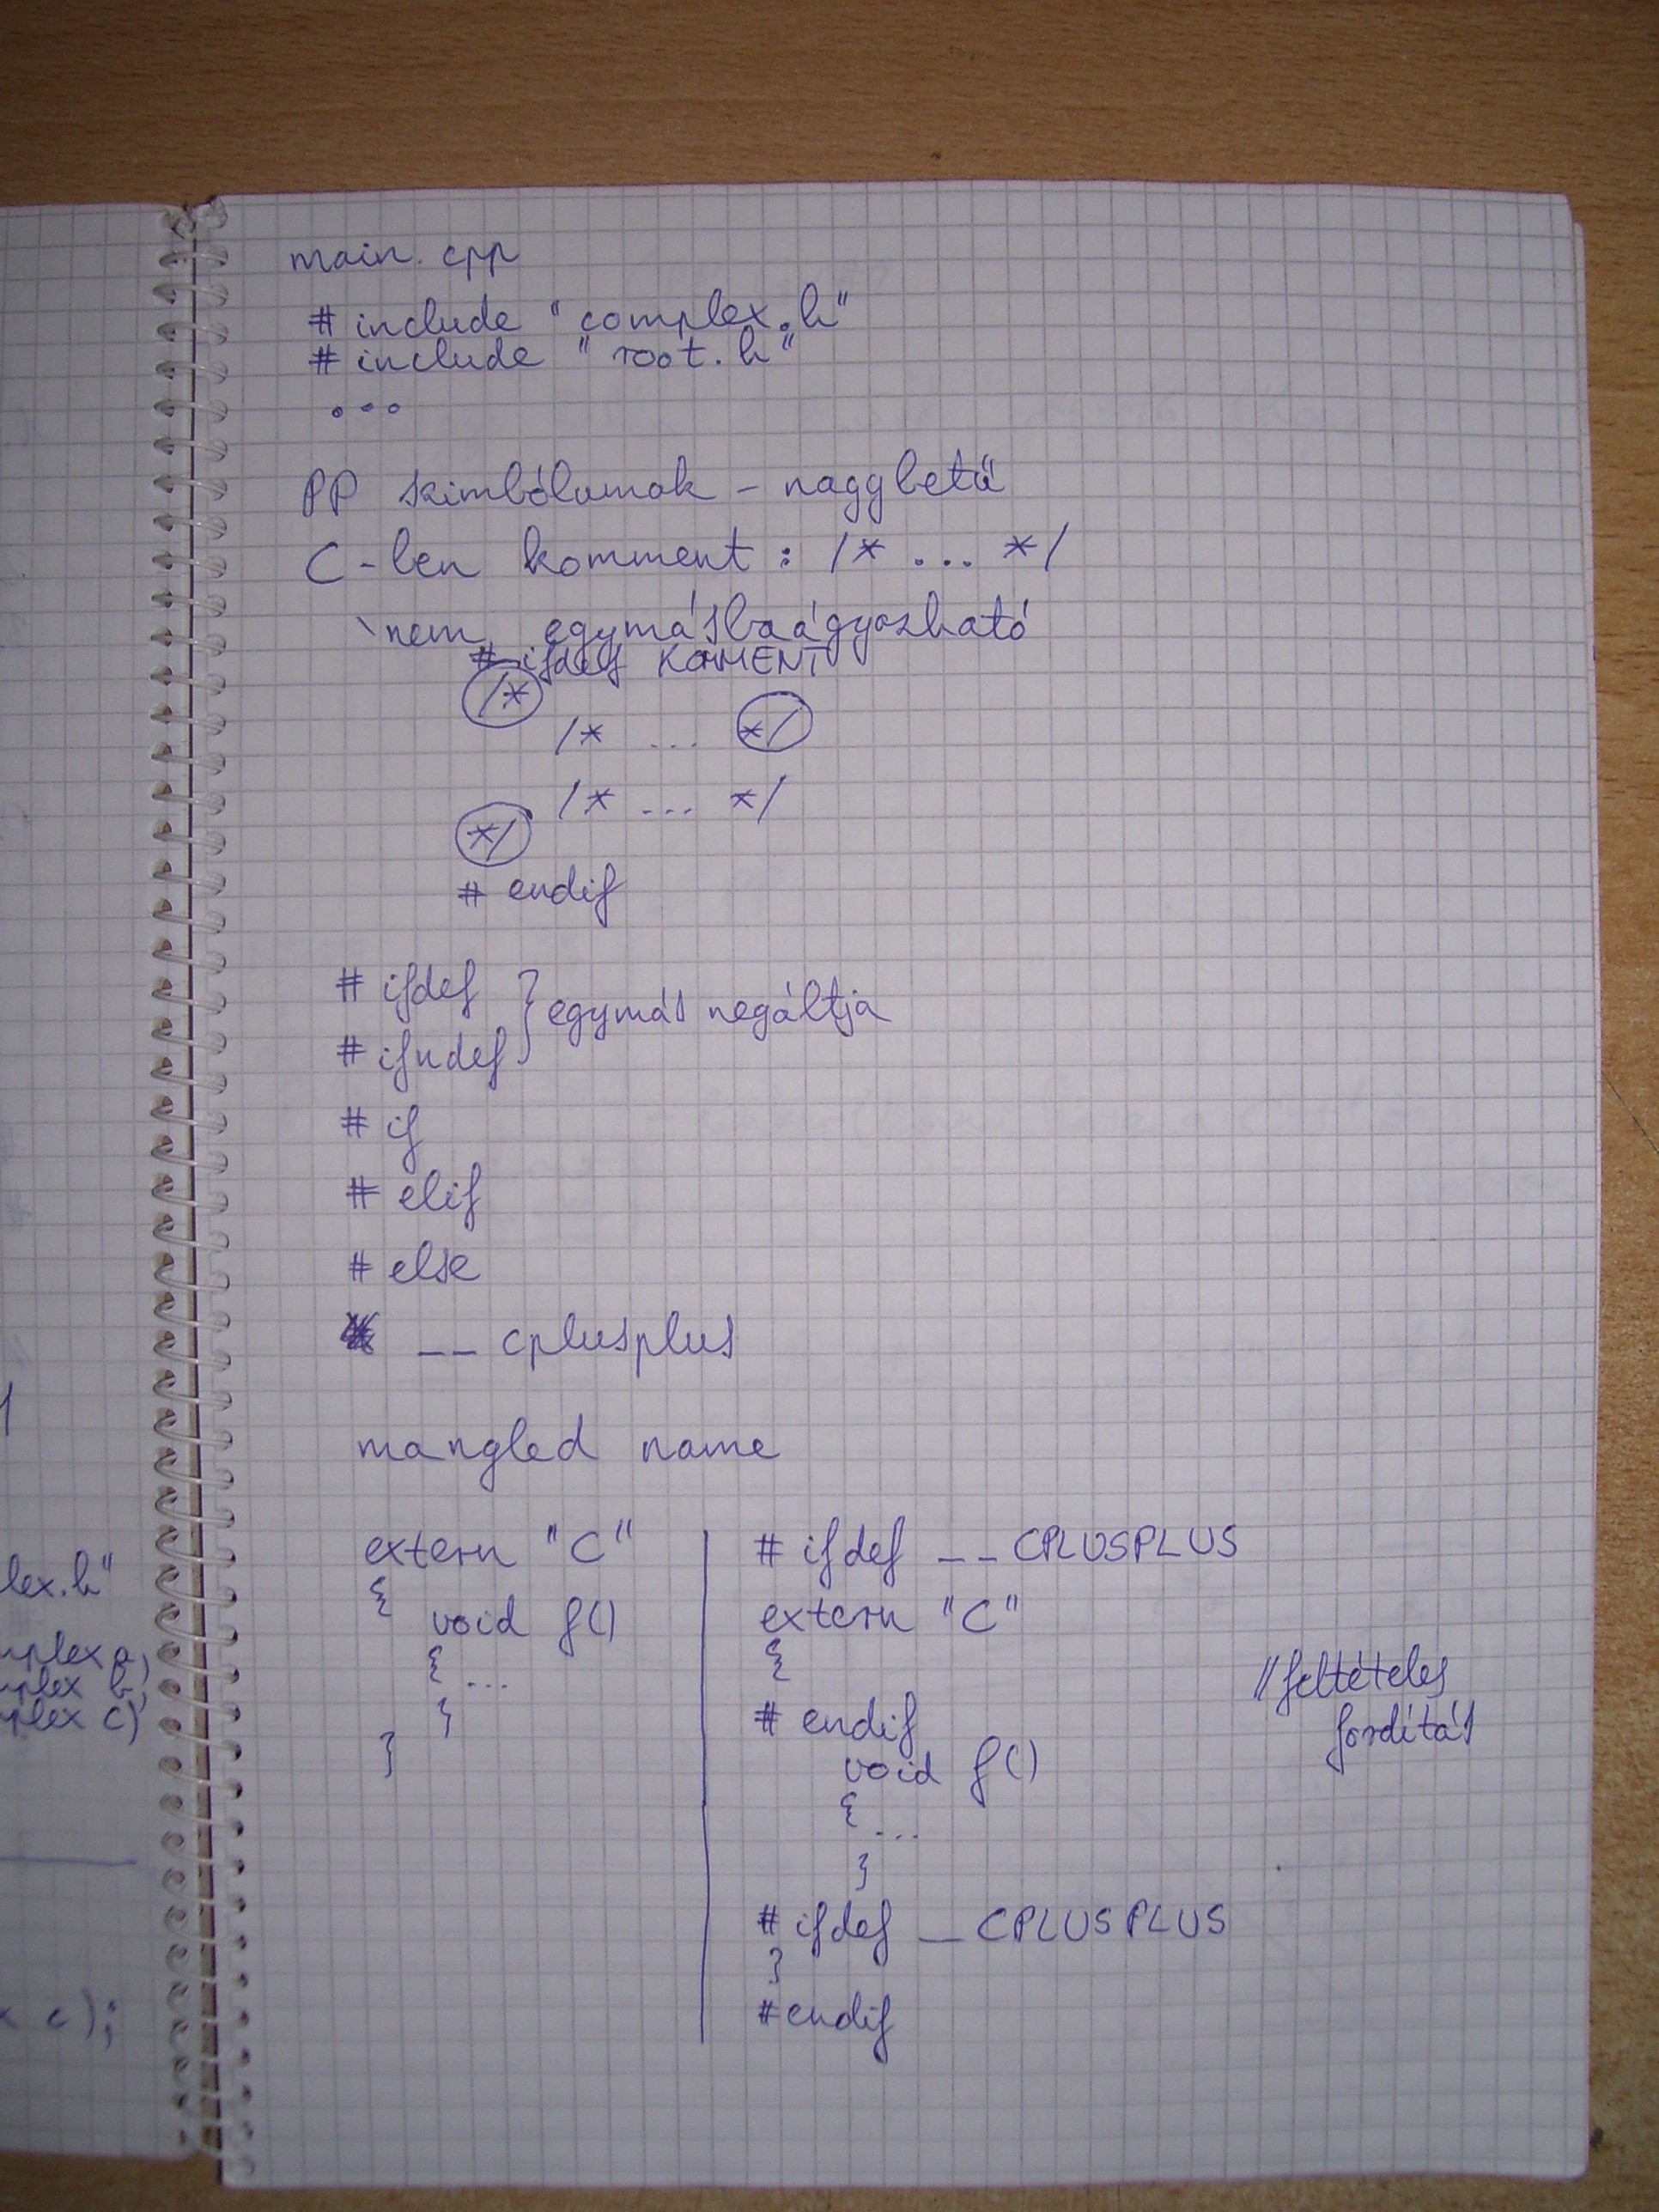 main.cpp
# include "complex.h"
# include "root.h"
...
PP szimbólumok - nagybetű
C-ben komment : /* ... */
nem egymásbaágyazható
# ifdef KOMMENT
/*
/* ... */
/* ... */
*/
# endif
# ifdef } egymás negáltja
# ifndef
# if
# elif
# else
__ cplusplus
mangled name
extern "C"
{
void f()
{ ...
}
}
# ifdef __CPLUSPLUS
extern "C"
{
# endif
void f()
{ ...
}
# ifdef __CPLUSPLUS
}
#endif
//feltételes
fordítás
lex.h"
mplex a,
mplex b,
plex c)
x c);